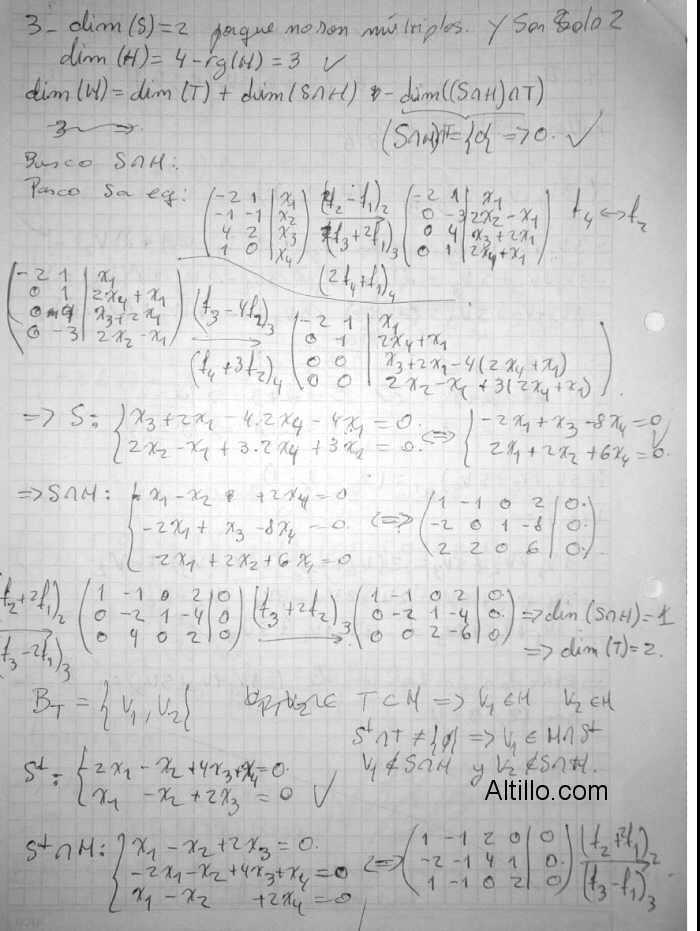 3- dim(S)=2 porque no son múltiplos. y son solo 2
dim(H) = 4-rg(H) = 3 ✓
dim(H) = dim(T) + dim(S∩H) - dim((S∩H)∩T)
3
(S∩H)∩T={0} => 0. ✓
Busco S∩H:
Pasco S a eq:
(-2 1 | x1
-1 -1 | x2
4 2 | x3
1 0 | x4)
(f2-f1)2
(f3+2f1)3
(2f4+f1)4
(-2 1 | x1
0 -3 | 2x2-x1
0 4 | x3+2x1
0 1 | 2x4+x1)
f4 <-> f2
(-2 1 | x1
0 1 | 2x4+x1
0 4 | x3+2x1
0 -3 | 2x2-x1)
(f3-4f2)3
(f4+3f2)4
(-2 1 | x1
0 1 | 2x4+x1
0 0 | x3+2x1-4(2x4+x1)
0 0 | 2x2-x1+3(2x4+x1))
=> S: { x3+2x1-4.2x4-4x1=0.
2x2-x1+3.2x4+3x1=0.
<=> { -2x1+x3-8x4=0
2x1+2x2+6x4=0. ✓
=> S∩H: { x1-x2+2x4=0
-2x1+x3-8x4=0.
2x1+2x2+6x4=0
<=> (1 -1 0 2 | 0.
-2 0 1 -8 | 0.
2 2 0 6 | 0.)
(f2+2f1)2
(f3-2f1)3
(1 -1 0 2 | 0
0 -2 1 -4 | 0
0 4 0 2 | 0)
(f3+2f2)3
(1 -1 0 2 | 0.
0 -2 1 -4 | 0.
0 0 2 -6 | 0.)
=> dim(S∩H)=1
=> dim(T)=2.
BT = { V1, V2 }
T ⊂ H => V1 ∈ H V2 ∈ H
S⊥∩T ≠ {0} => V1 ∈ H∩S⊥
V1 ∉ S∩H y V2 ∉ S∩H.
S⊥: { 2x1-x2+4x3+x4=0.
x1-x2+2x3=0 ✓
Altillo.com
S⊥∩H: { x1-x2+2x3=0.
-2x1-x2+4x3+x4=0
x1-x2+2x4=0
<=> (1 -1 2 0 | 0
-2 -1 4 1 | 0.
1 -1 0 2 | 0)
(f2+2f1)2
(f3-f1)3